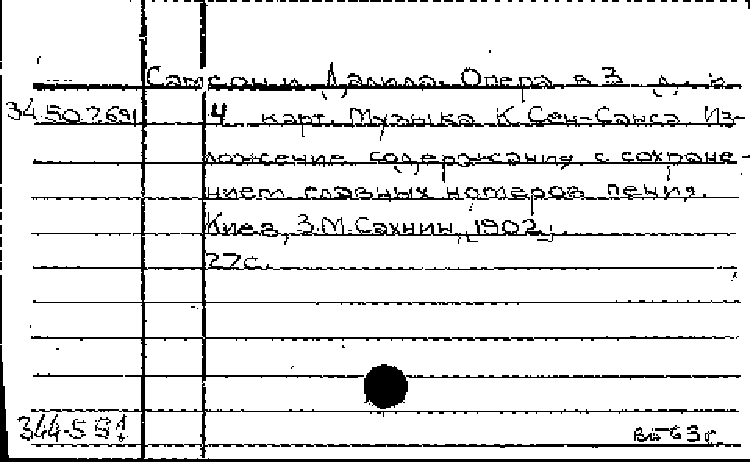 Самсон и Далила. Опера в 3 д. и
34.50.2691 4 карт. Музыка К. Сен-Санса. Из-
ложение содержания с сохране-
нием главных номеров пения.
Киев, З.М. Сахнин, [1902].
22с.
344-591